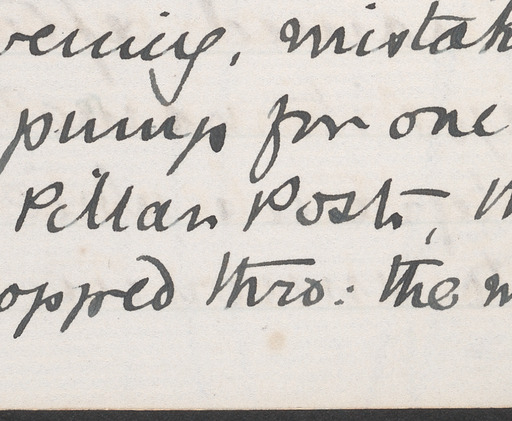 vening, mistak
pump for one
Pillar Posts, th
opped thro: the m